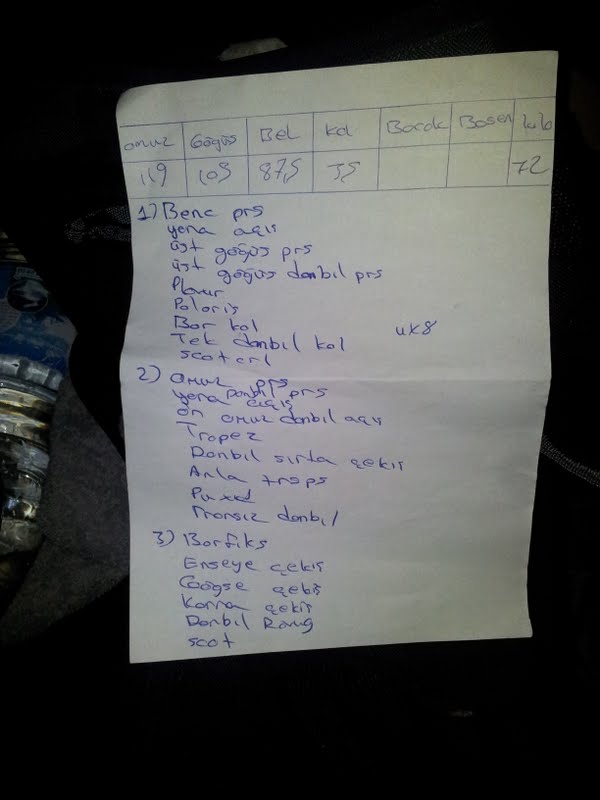 omuz Göğüs Bel Kol Bacak Basen kilo
119 103 87,5 35 72
1) Benc prs
yana açış
üst göğüs prs
üst göğüs donbıl prs
Plovır
Poloris
Bar kol
ux8
Tek donbıl kol
scot crl
2) omuz prs
yena Donbıl prs
açış
ön omuz donbıl açış
Tropez
Donbıl sırta çekiş
Arka trsps
Fransız donbıl
3) Barfiks
Enseye çekiş
Göğse çekiş
Karna çekiş
Donbıl Rovıg
scot